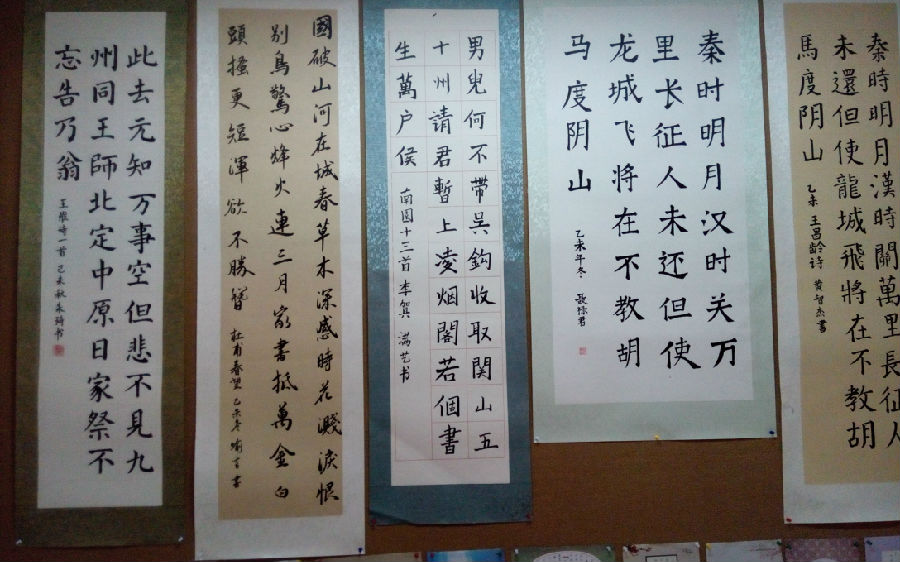 此去元知万事空但悲不見九
州同王師北定中原日家祭不
忘告乃翁
王维诗一首 乙未秋朱琦书
國破山河在城春草木深感時花濺淚恨
别鳥驚心烽火連三月家書抵萬金白
頭搔更短渾欲不勝簪
杜甫春望 乙未冬
男兒何不帶吳鈎收取関山五
十州請君暫上凌烟閣若個書
生萬户侯
南園十三首 李賀 满艺书
秦时明月汉时关万
里长征人未还但使
龙城飞将在不教胡
马度阴山
乙未年冬
秦時明月漢時關萬里長征人
未還但使龍城飛將在不教胡
馬度阴山
乙未 王昌龄诗 黄智杰書